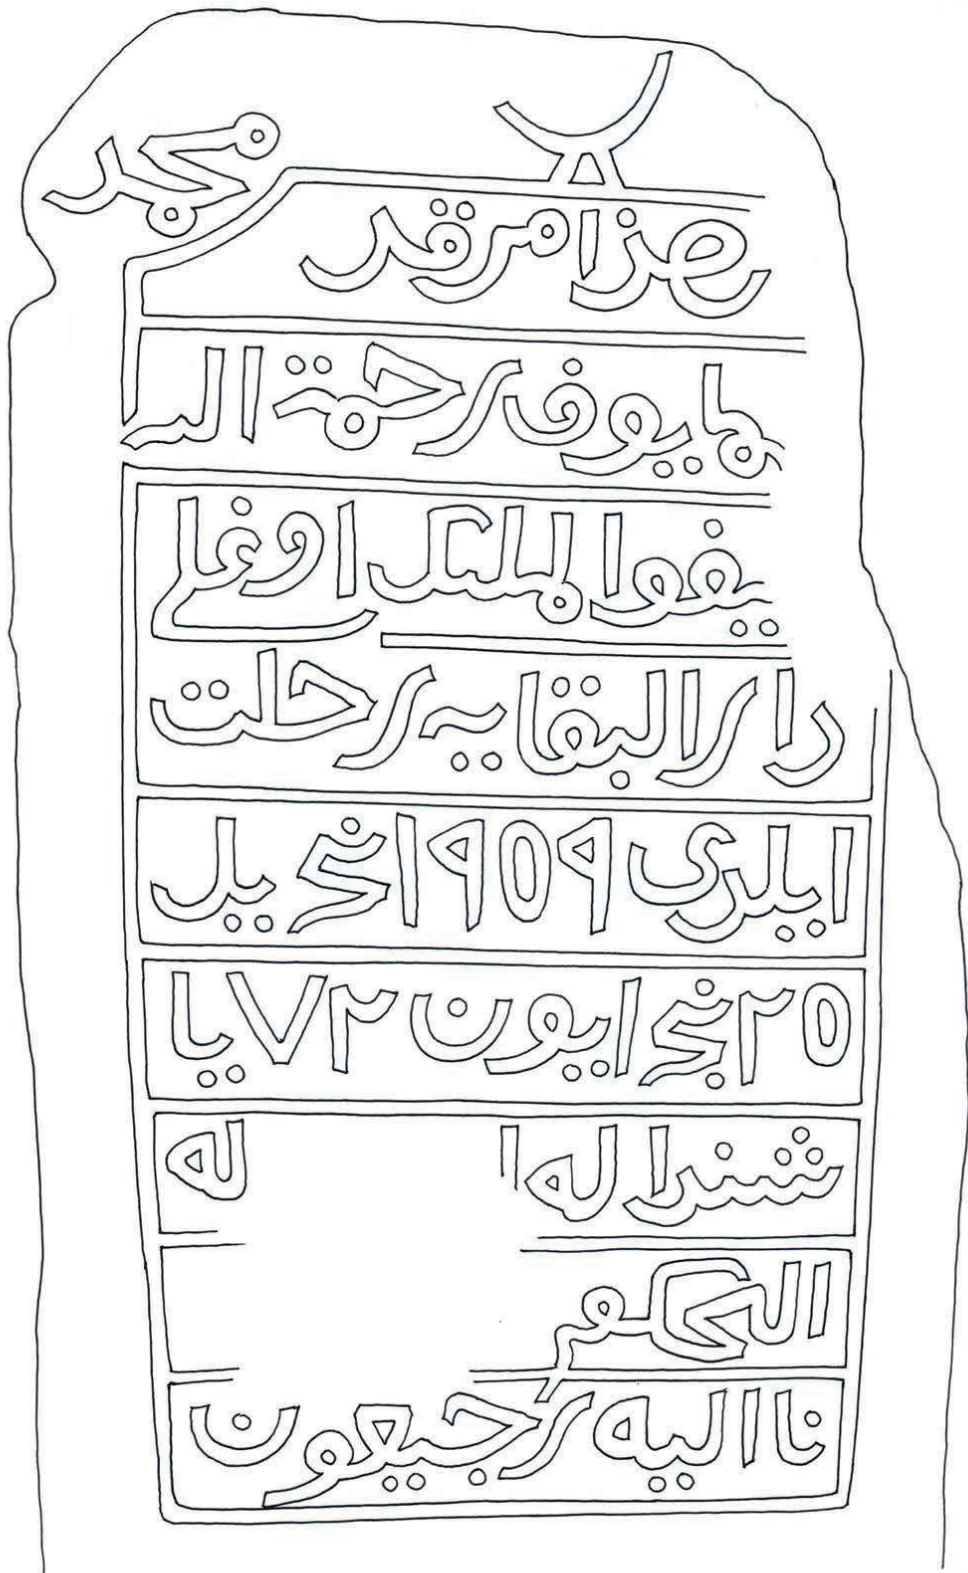 محمد
هذا مرقد
هايوف رحمة الله
يفوا الملك اوغلي
دار البقايه رحلت
ايلدى ١٩٥٩ نجى يل
٢٥ نجى ايون ٧٢ يا
شندا له ا له
الحكم
نا اليه رجيعون